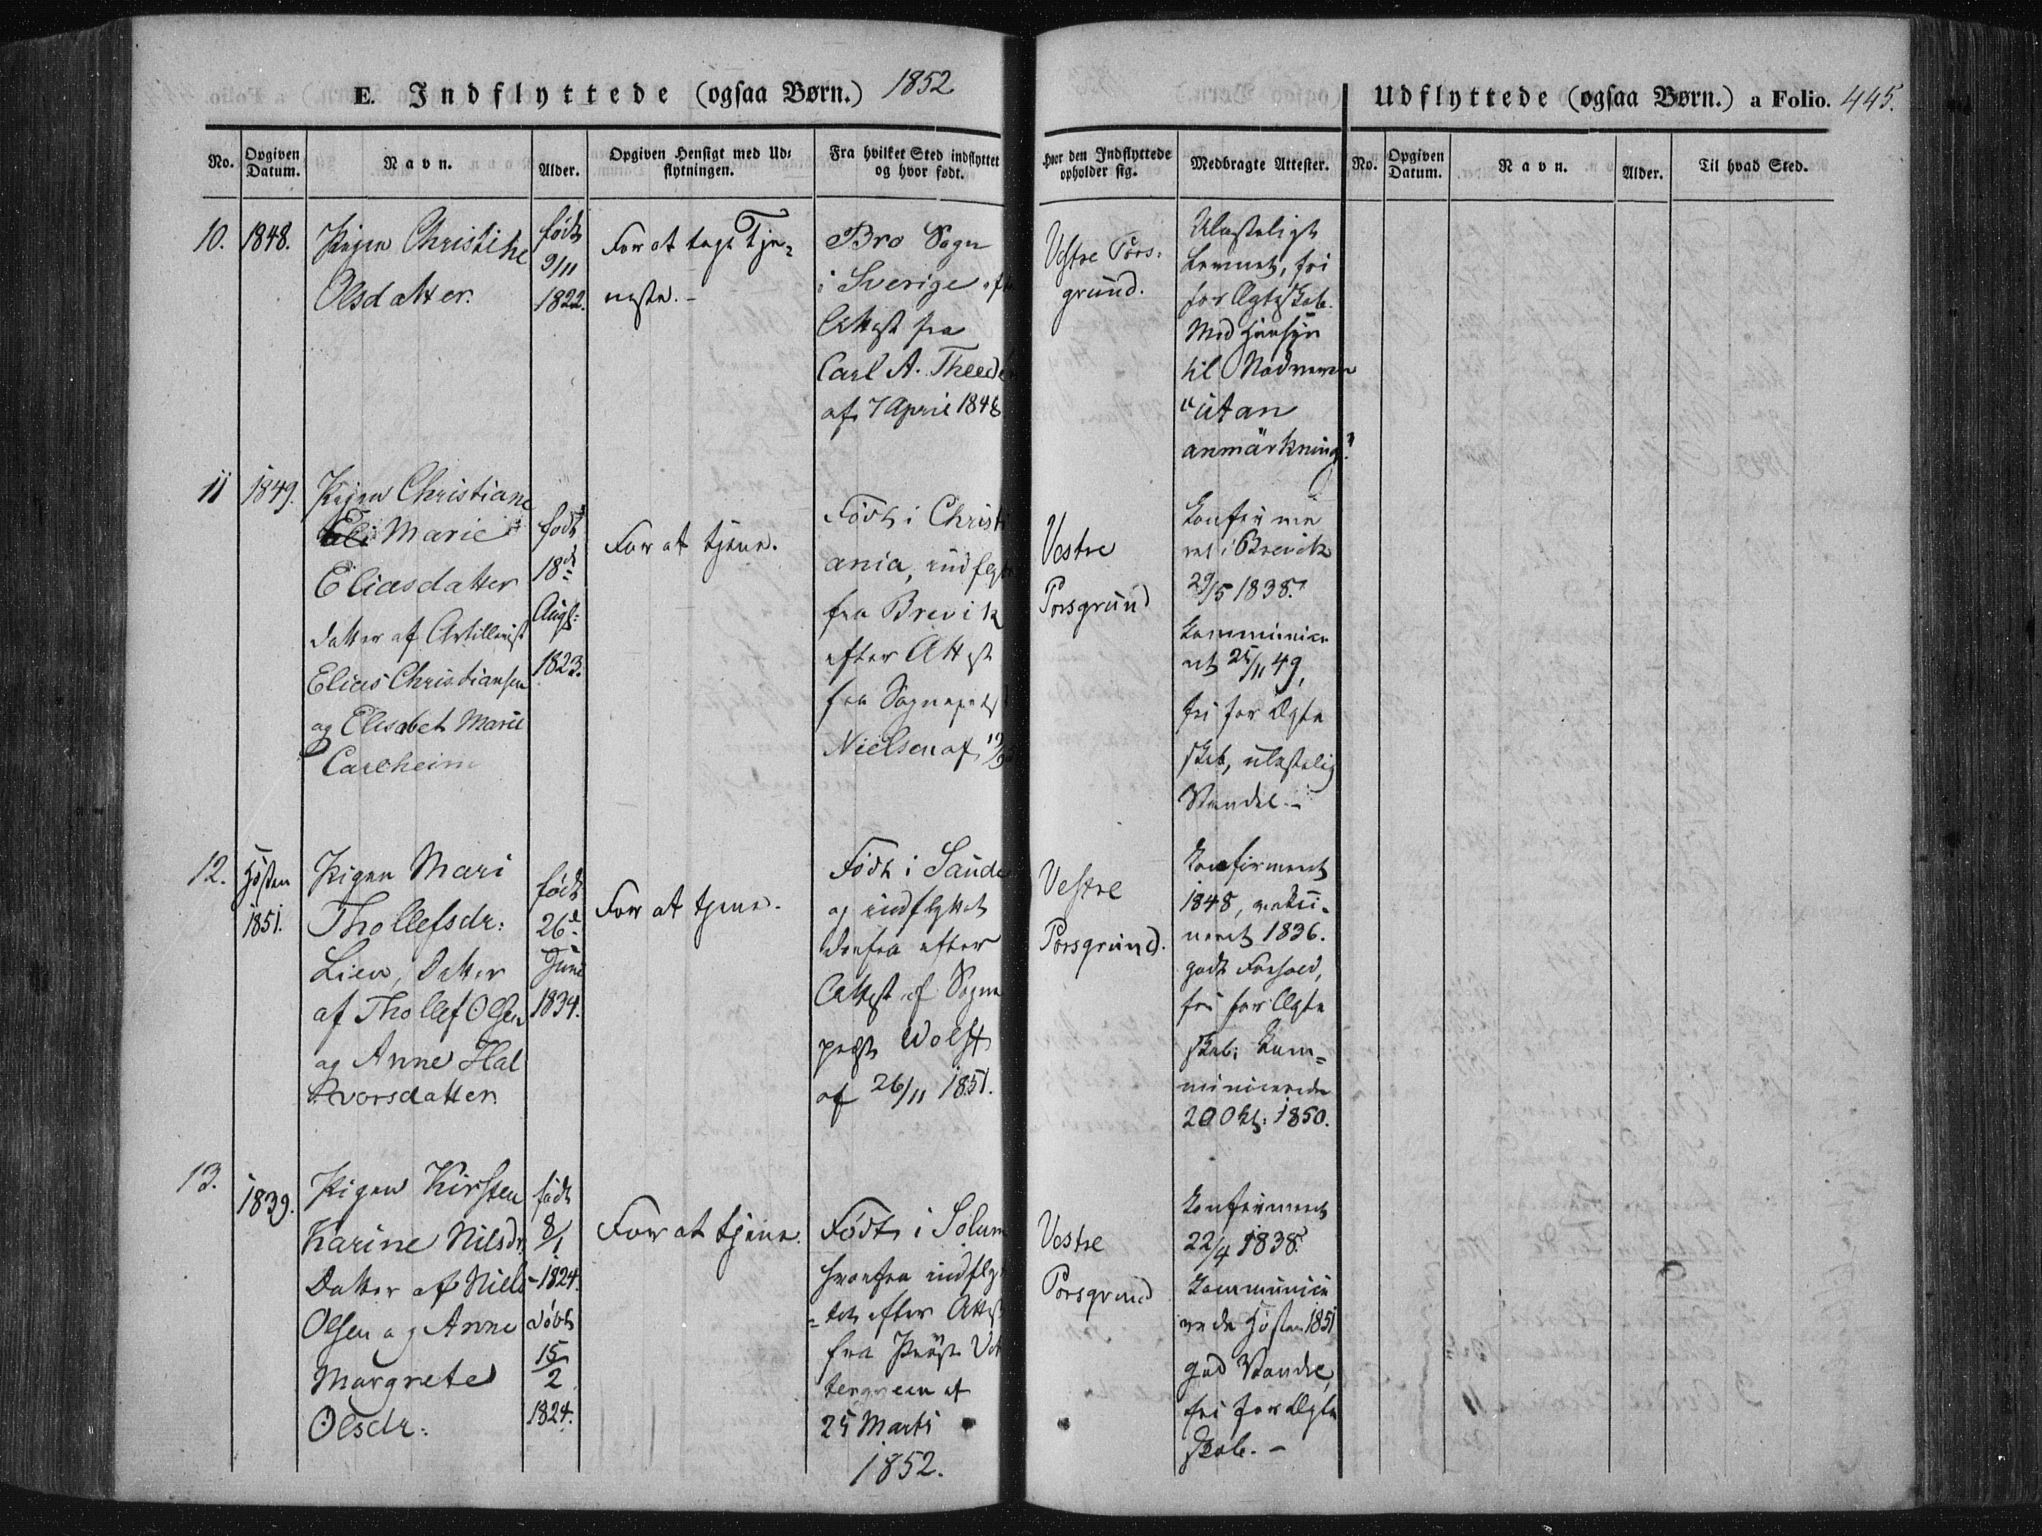 E. Indflyttede (ogsaa Børn.) 1852
Udflyttede (ogsaa Børn.) a Folio. 445.
No.
Opgiven Datum.
Navn.
Alder.
Opgiven Hensigt med Ud-
flytningen.
Fra hvilket Sted indflyttet
og hvor født.
Hvor den Indflyttede
opholder sig.
Medbragte Attester.
No.
Opgiven Datum.
Navn.
Alder.
Til hvad Sted.
10.
1848.
Pigen Christine
Olsdatter.
født
9/11
1822.
For at tage Tje-
neste. -
Bro Sogn
i Sverige
Attest fra
Carl A.
af 7 April 1848
Vestre Pors-
grund.
Ulasteligt
Levnet, fri
for Ægteskab.
Med Hensyn
til
"utan
anmärkning".
11
1849.
Pigen Christiane
Marie
Eliasdatter
datter af Artillerist
Elias Christiansen
og Elisabet Marie
født
18de
Augs:
1823.
For at tjene.
Født i Christi
ania, indfly
fra Brevik
efter Attest
fra
Nielsen af
Vestre
Porsgrund
Konfirme
ret i Brevik
29/5 1838.
Kommunice
ret 25/11 49,
fri for Ægte
skab, ulastelig
Vandel. -
12.
Høsten
1851.
Pigen Mari
Thollefsdr:
Lien, Datter
af Thollef Olsen
og Anne Hal
vorsdatter.
født
26de
Juni
1834.
For at tjene.
Født i Saude
og indflyttet
derfra efter
Attest af Sogne
præst Wolff
af 26/11 1851.
Vestre
Porsgrund.
Konfirmeret
1848, vakci-
neret 1836.
godt Forhold,
fri for Ægte
skab; Kom-
municerede
20 Okt: 1850.
13.
1839.
Pigen Kirsten
Karine Nilsdr,
Datter af Niels
Olsen og Anne
Margrete
Olsdr:
født
8/1
-1824.
døbt
15/2
1824.
For at tjene.
Født i Solum
hvorfra indflyt
-tet efter Attest
fra Prøst
tergreen af
25 Marts
1852.
Vestre
Porsgrund
Konfirmeret
22/4 1838.
Kommunici
rede Høsten 1851
god Vandel,
fri for Ægte
skab. -